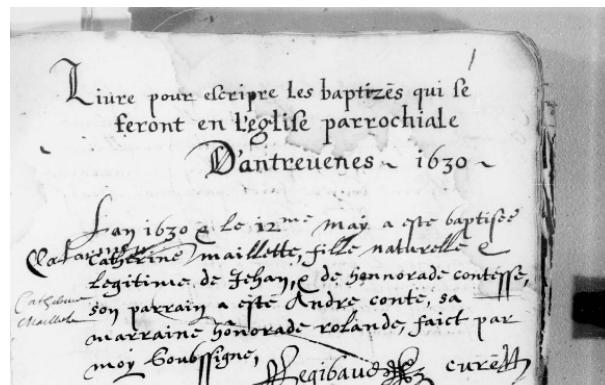 1
Liure pour escripre les baptizès qui se
feront en l'eglise parrochiale
D'antreuenes ~ 1630 ~
Lan 1630 & le 12me may a este baptisee
Catherine maillette, fille naturelle &
legitime de Jehan, & de honnorade contesse,
Catherine
Maillete
son parrain a esté Andre conte, sa
marraine honorade rolande, faict par
moy soubssigne,
Regibaud curé